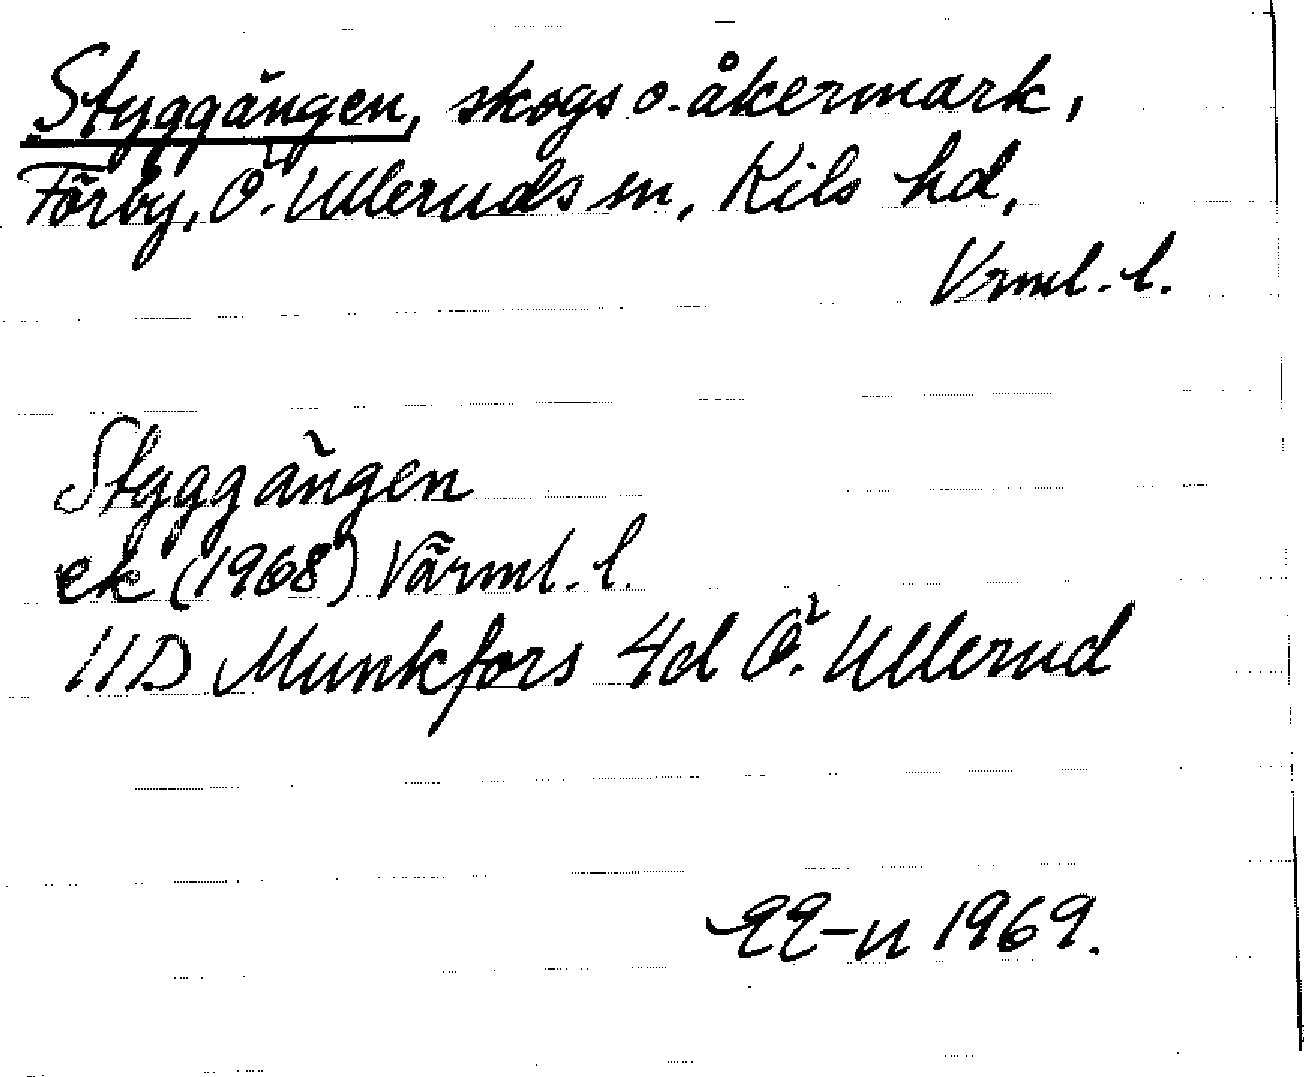 Styggängen, skogs o. åkermark,
Förby, Ö. Ulleruds sn, Kils hd,
Vrml. l.
Styggängen
ek (1968) Värml. l.
11D Munkfors 4d Ö. Ullerud
EE-n 1969.